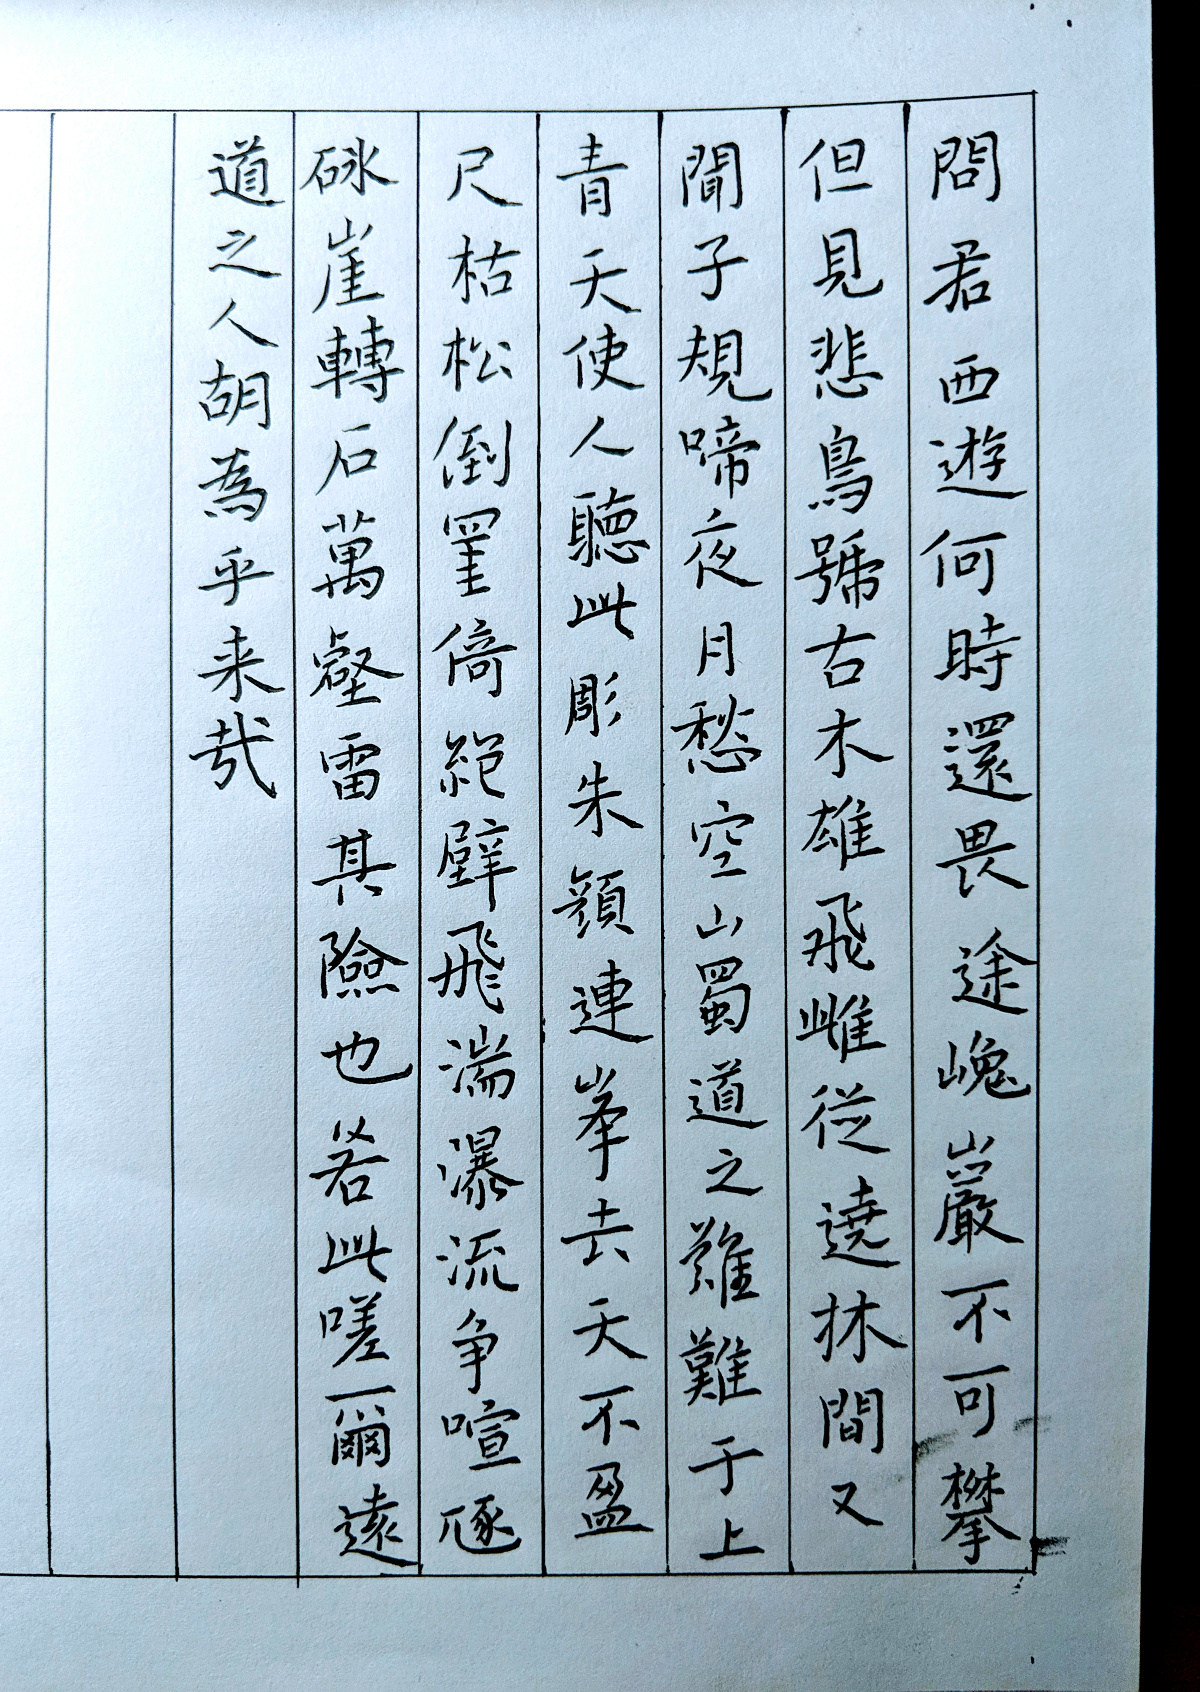 問君西遊何時還畏途巉巖不可攀
但見悲鳥號古木雄飛雌從遶林間又
聞子規啼夜月愁空山蜀道之難難于上
青天使人聽此彫朱顏連峯去天不盈
尺枯松倒罣倚絕壁飛湍瀑流爭喧豗
砯崖轉石萬壑雷其險也若此嗟爾遠
道之人胡為乎来哉